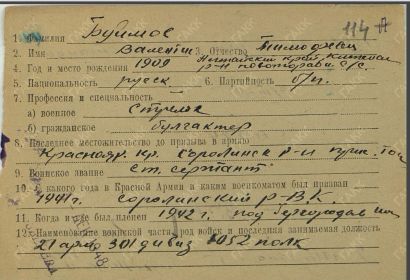 114
1. Фамилия Буимов
2. Имя Валентин 3. Отчество Тимофеев
4. Год и место рождения 1900 край
р-н с/с.
5. Национальность русск 6. Партийность б/п.
7. Профессия и специальность
а) военное стрелок
б) гражданское булгактер
8. Последнее местожительство до призыва в армию
Краснояр. кр. Соролинск р-н
9. Воинское звание ст. сержант
10. С какого года в Красной Армии и каким военкоматом был призван
1941г. Соролинский Р.В.К.
11. Когда и где был пленен 1942 г. под
12. Наименование воинской части род войск и последняя занимаемая должность
21 арм 301 дивиз 1052 полк